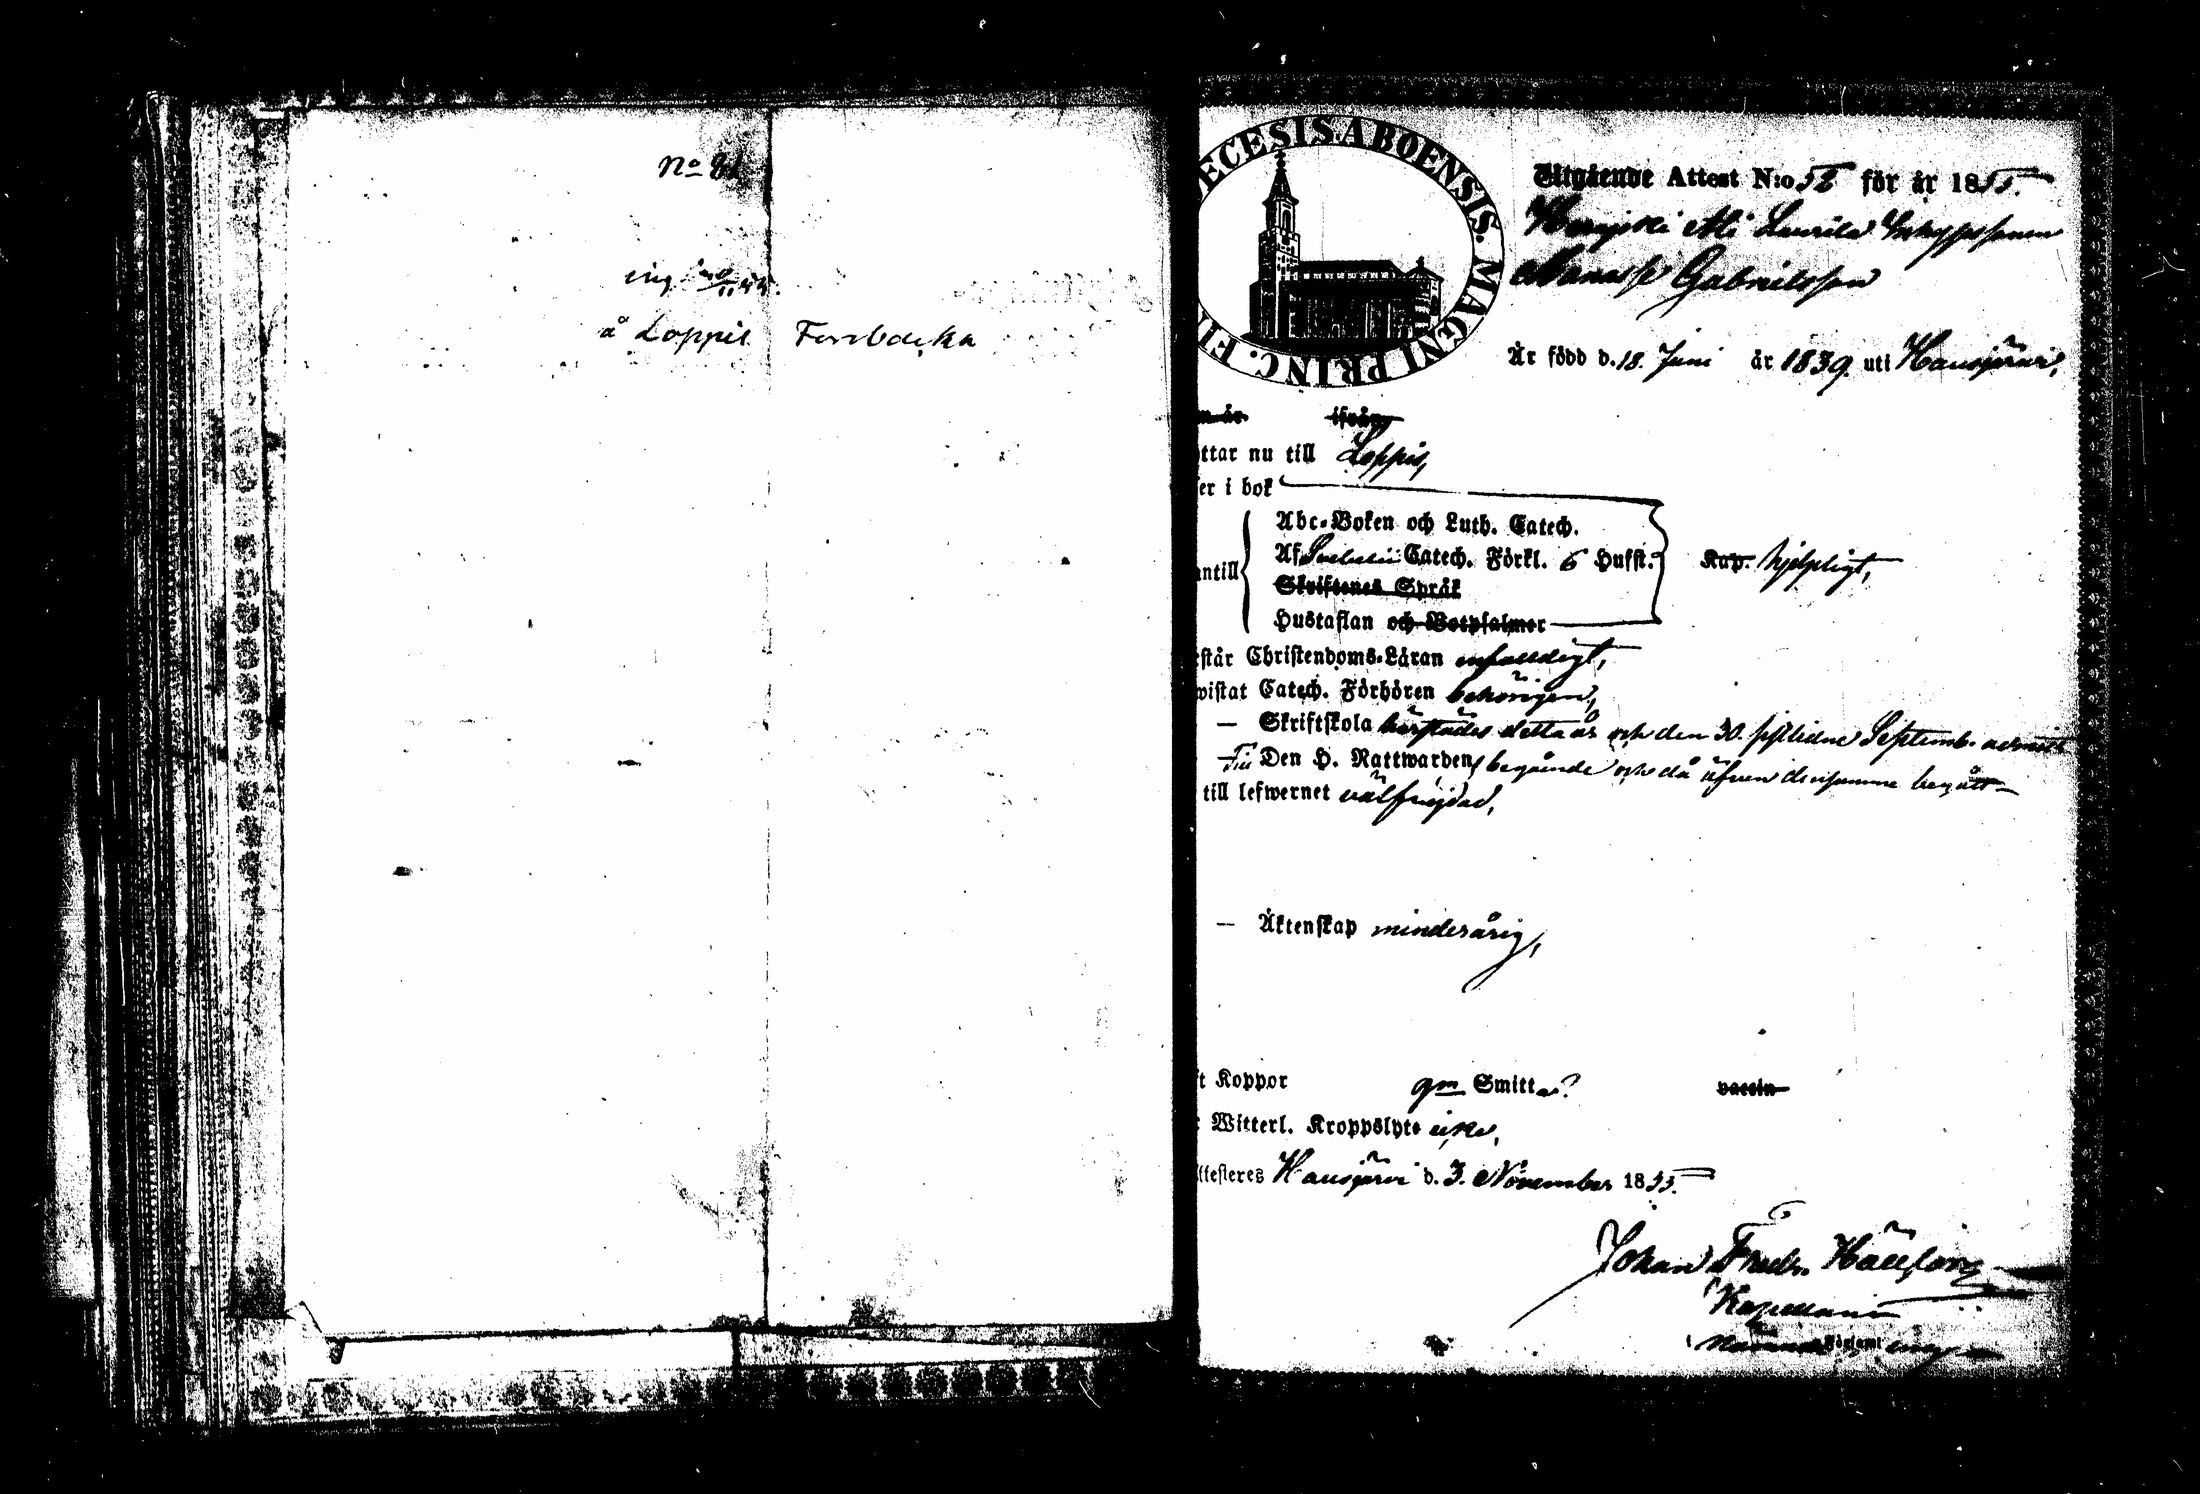 No 81
ing 10/11 55.
å Loppis Forsbacka
ECESIS ABOENSIS. MAGNI PRINC. FI
Utgående Attest N:o 52 för år 1855.
Laurila Inhyssonen
Gabrielsson
Är född d. 18. Juni år 1839. uti Hausjärvi,
n år ifrån
ttar nu till Loppis,
er i bok
Abc-Boken och Luth. Catech.
Af Svebelii Catech. Förkl. 6 Hufst. Kap. hjelpligt,
antill
Skriftenes Språk
Hustaflan och Botpsalmer
står Christendoms-Läran enfaldigt,
vistat Catech. Förhören behörigen,
— Skriftskola härstädes detta år och den 30. sistlidne Septemb. admitt
Till Den H. Nattwarden begående och då äfven densamma begått
till lefwernet välfrejdad,
— Äktenskap minderårig,
t Koppor gm Smitta?
vaccin
Witterl. Kroppslyte icke,
ttesteres Hausjärvi d. 3. November 1855.
Johan Fredr. Hällfors
Kapellan